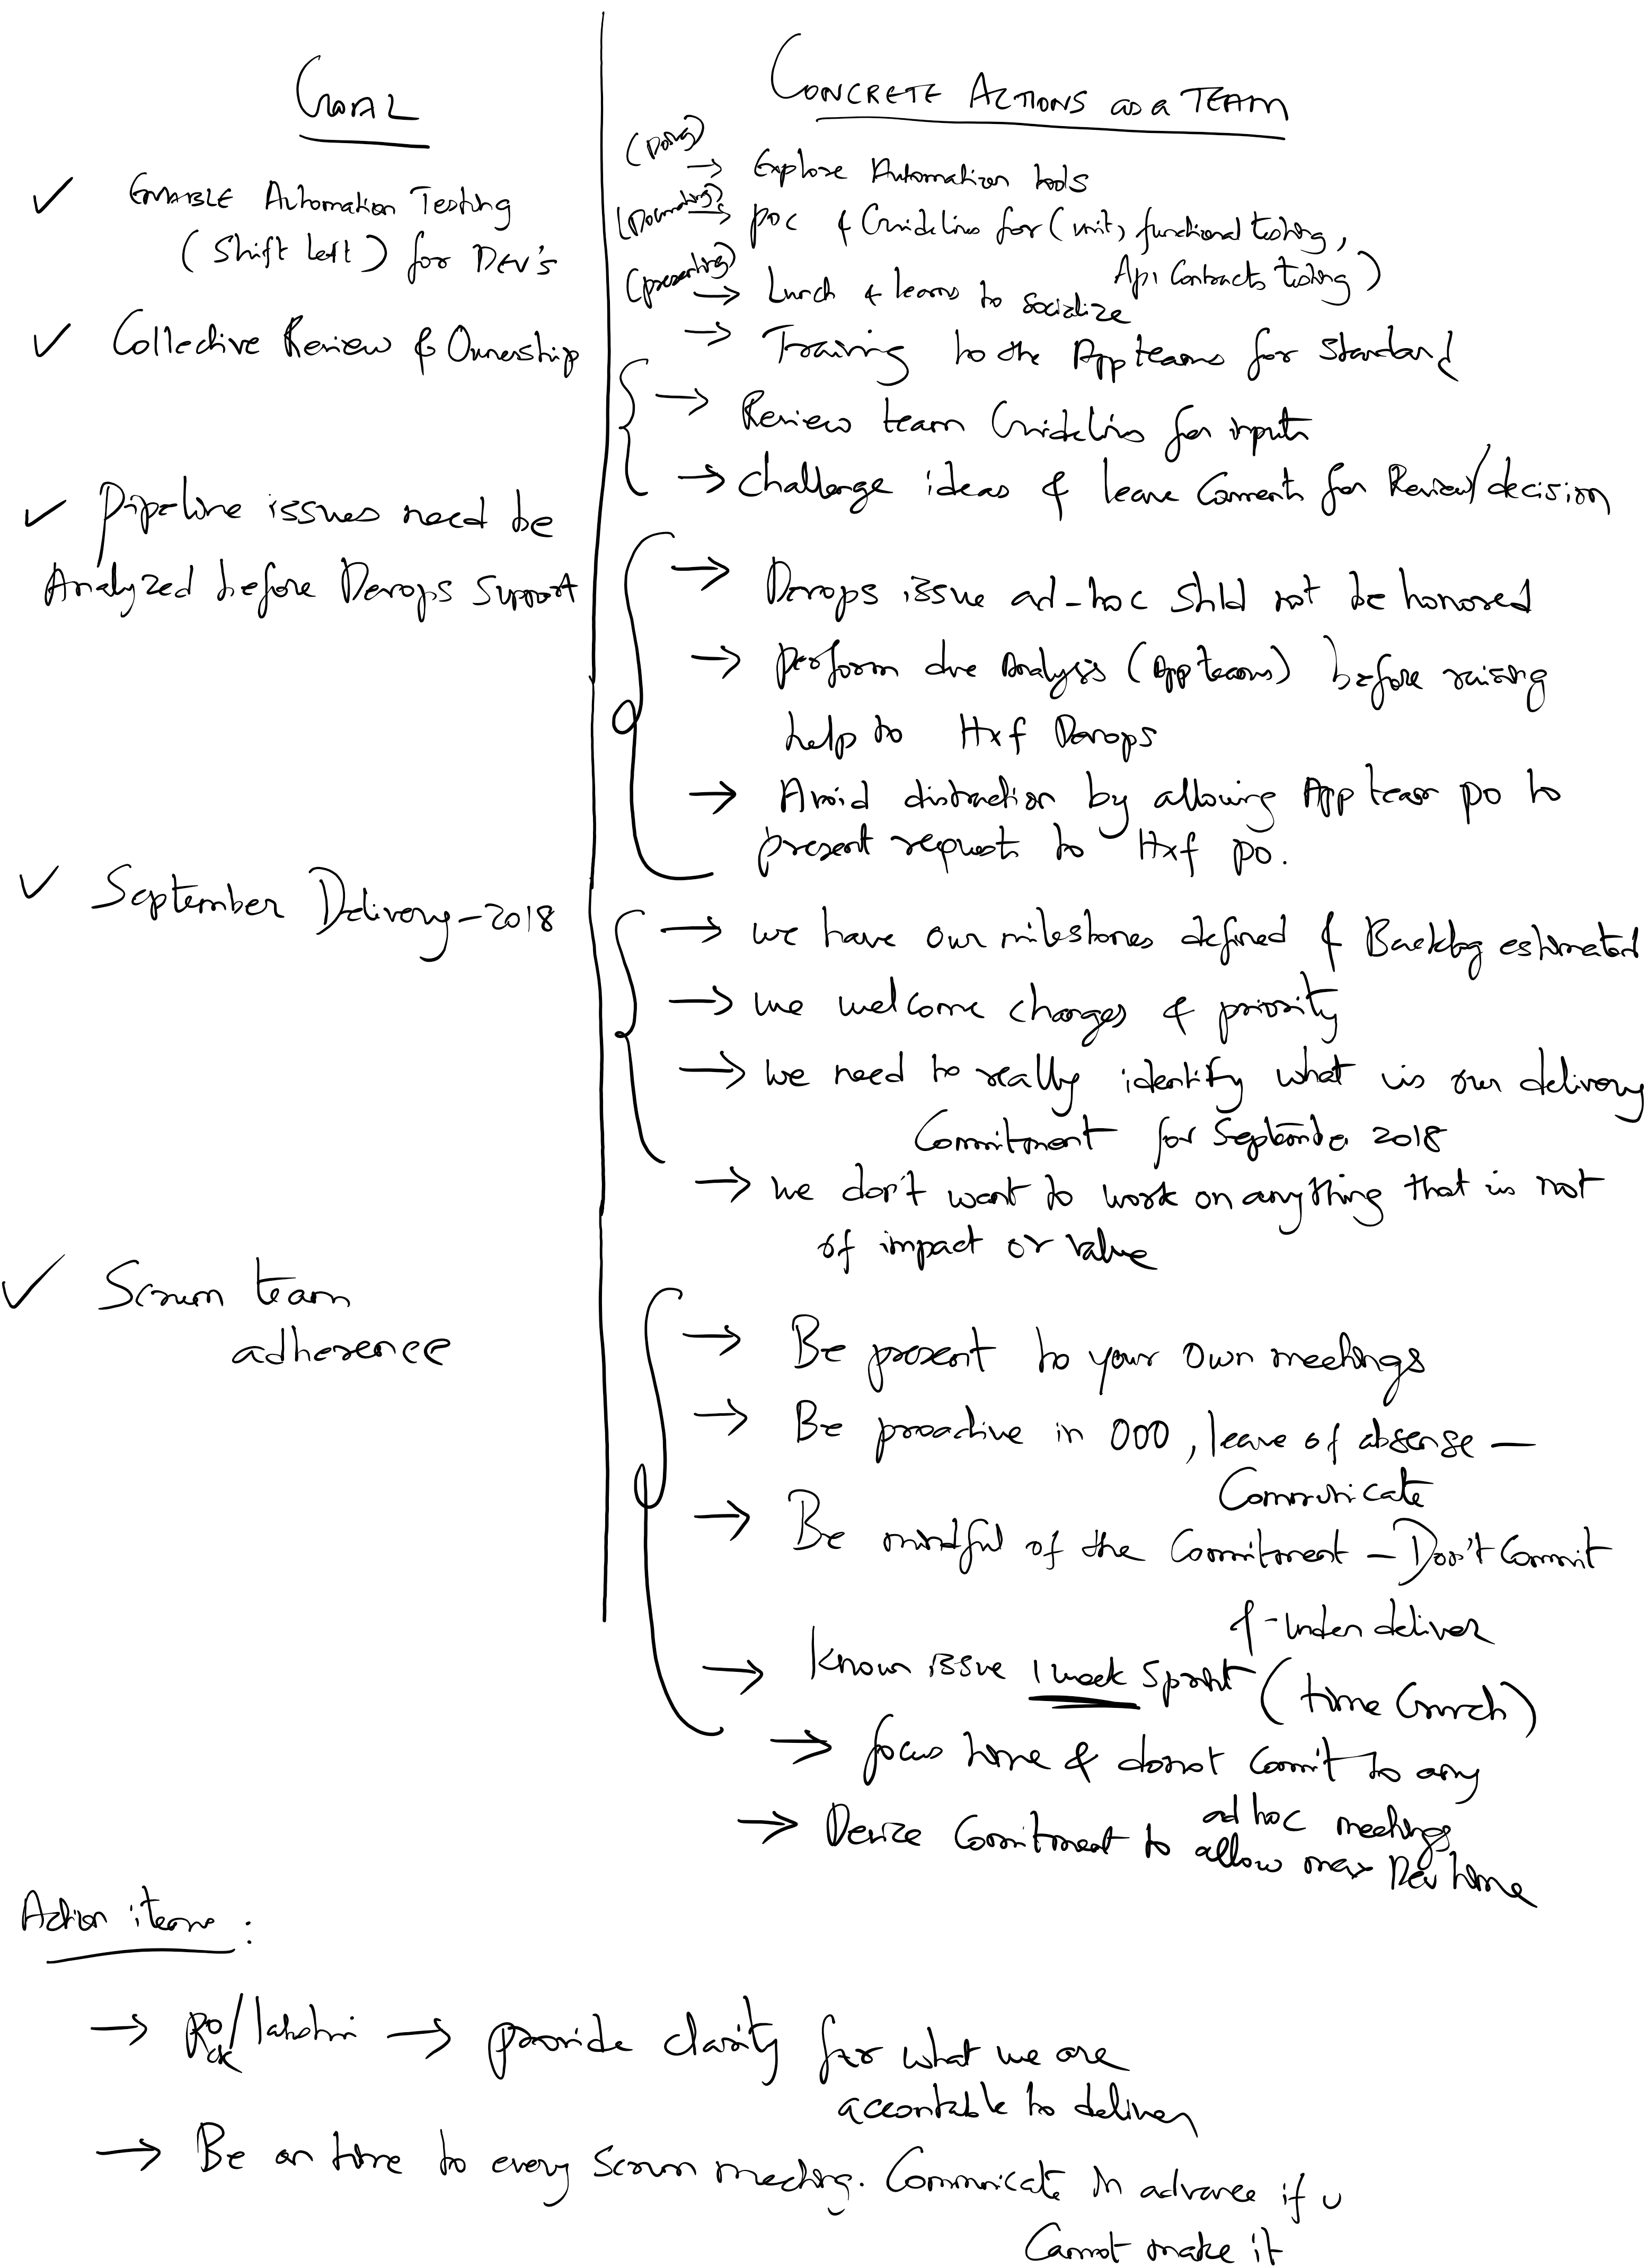 GOAL
✓ ENABLE Automation Testing
(Shift left) for DEV's
✓ Collective Review & Ownership
✓ Pipeline issues need be
Analyzed before Devops Support
✓ September Delivery - 2018
✓ Scrum team
adherence
CONCRETE ACTIONS as a TEAM
(Doing)
→ Explore Automation tools
(Documenting)
→ POC & Guidelines for (unit, functional testing,
Api Contracts testing)
(presenting)
→ Lunch & learns to socialize
→ Training to the App teams for standard
→ Review team Guidelines for inputs
→ challenge ideas & leave Comments for Review/decision
→ Devops issue ad-hoc shld not be honored
→ perform due Analysis (App teams) before raising
help to Hxf Devops
→ Avoid distraction by allowing App team PO to
present requests to Hxf PO.
→ we have our milestones defined & Backlog estimated
→ we welcome changes & priority
→ we need to really identify what is our delivery
Commitment for September 2018
→ we don't want to work on anything that is not
of impact or value
→ Be present to your own meetings
→ Be proactive in OOO, leave of absense —
Communicate
→ Be mindful of the Commitment — Don't Commit
& - Under deliver
→ Known issue 1 week Sprint (time Crunch)
→ focus time & donot Commit to any
ad hoc meetings
→ Devize Commitment to allow more Dev time
Action items :
→ PO/lakshmi → provide clarity for what we are
accontable to deliver
→ Be on time to every Scrum meeting. Communicate in advance if u
Cannot make it